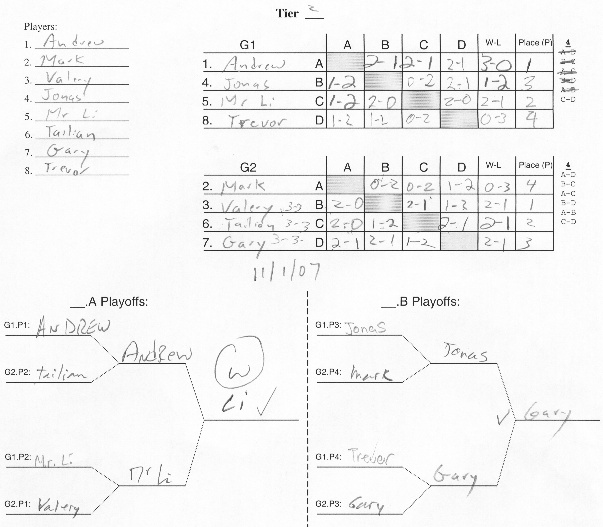 Tier 2
Players:
1. Andrew
2. Mark
3. Valery
4. Jonas
5. Mr Li
6. Tailian
7. Gary
8. Trevor
G1 A B C D W-L Place (P) 4
1. Andrew A 2-1 2-1 2-1 3-0 1
4. Jonas B 1-2 0-2 2-1 1-2 3
5. Mr Li C 1-2 2-0 2-0 2-1 2
8. Trevor D 1-2 1-2 0-2 0-3 4
C-D
G2 A B C D W-L Place (P) 4
2. Mark A 0-2 0-2 1-2 0-3 4
3. Valery B 2-0 2-1 1-2 2-1 1
6. Tailian 3-3 C 2-0 1-2 2-1 2-1 2
7. Gary 3-3 D 2-1 2-1 1-2 2-1 3
A-D
B-C
A-C
B-D
A-B
C-D
11/1/07
__.A Playoffs:
G1.P1: ANDREW
Andrew
G2.P2: Tailian
W
Li ✓
G1.P2: Mr. Li
Mr Li
G2.P1: Valery
__.B Playoffs:
G1.P3: Jonas
Jonas
G2.P4: Mark
✓ Gary
G1.P4: Trevor
Gary
G2.P3: Gary